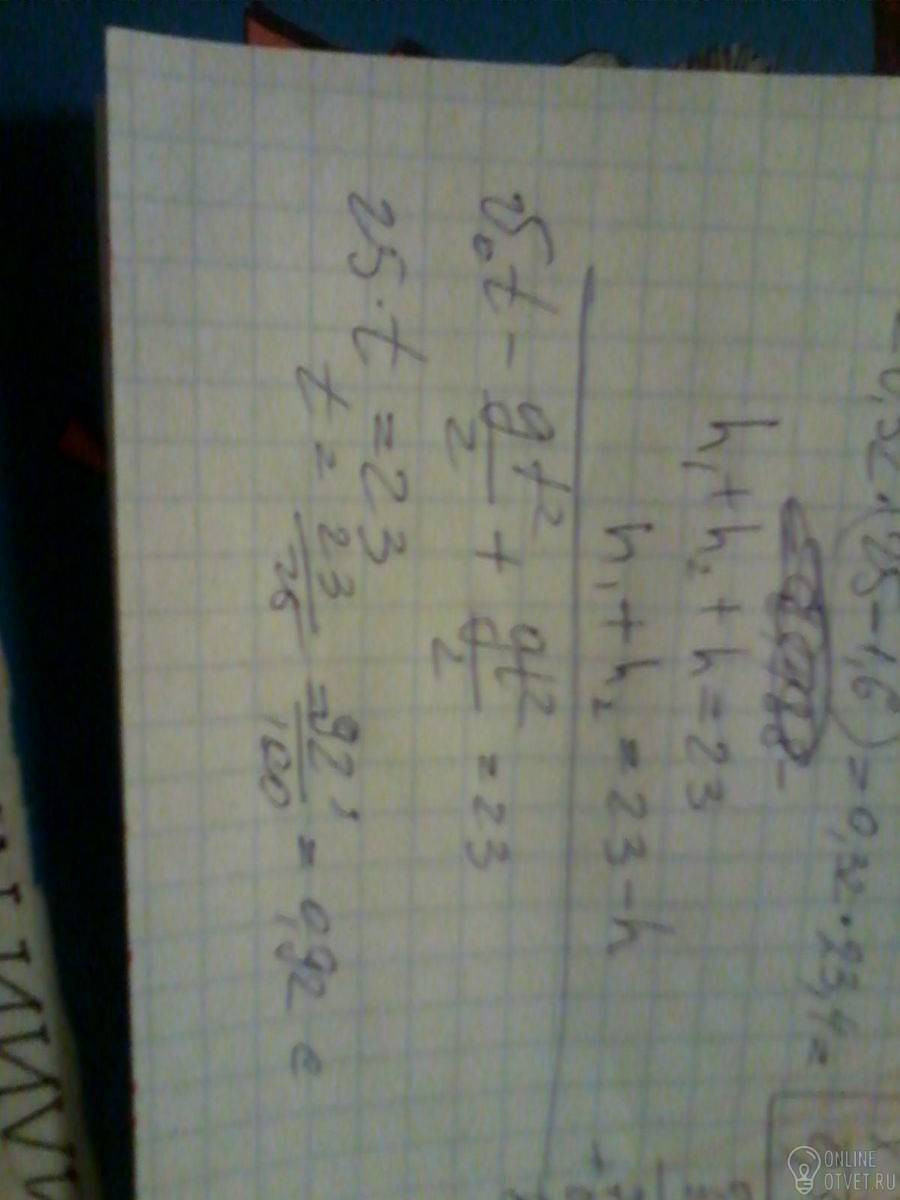 0,32·(25-1,6)=0,32·23,4=
h₁+h₂+h=23
h₁+h₂=23-h
v₀t - gt²/2 + gt²/2 = 23
25·t=23
t = 23/25 = 92/100 = 0,92 c
ONLINE
OTVET.RU